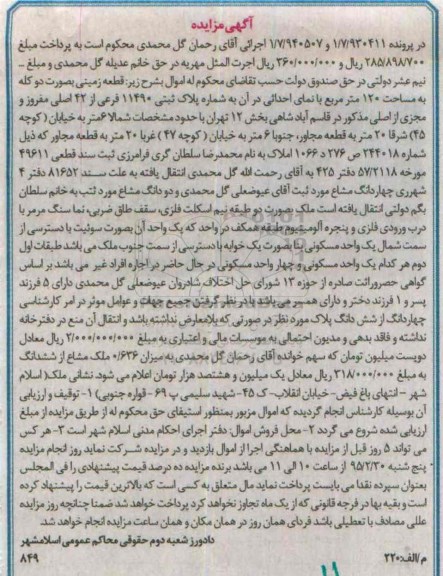 آگهی مزایده
در پرونده ۱/۷/۹۳۰۴۱۱ و ۱/۷/۹۴۰۵۰۷ اجرائی آقای رحمان گل محمدی محکوم است به پرداخت مبلغ
۲۸۵/۸۹۸/۷۰۰ ریال و ۲۶۰/۰۰۰/۰۰۰ ریال اجرت المثل مهریه در حق خانم عدیله گل محمدی و مبلغ –
نیم عشر دولتی در حق صندوق دولت حسب تقاضای محکوم له اموال بشرح زیر: قطعه زمینی بصورت دو کله
به مساحت ۱۲۰ متر مربع با نمای احداثی در آن به شماره پلاک ثبتی ۱۱۴۹۰ فرعی از ۴۲ اصلی مفروز و
مجزی از اصلی مذکور در قاسم آباد شاهی بخش ۱۲ تهران با حدود مشخصات شمالا ۶ متر به خیابان (کوچه
۴۵) شرقا ۲۰ متر به قطعه مجاور، جنوبا ۶ متر به خیابان (کوچه ۴۷) غربا ۲۰ متر به قطعه مجاور که ذیل
شماره ۲۴۴۰۱۸ ص ۲۷۶ د ۱۰۶۶ املاک به نام محمدرضا سلطان گری فرامرزی ثبت سند قطعی ۴۹۶۱۱
مورخه ۵۷/۲/۱۸ دفتر ۴۲۵ به آقای رحمت الله گل محمدی انتقال یافته به علت سند ۸۱۶۵۲ دفتر ۴
شهرری چهاردانگ مشاع مورد ثبت آقای عیوضعلی گل محمدی و دو دانگ مشاع مورد ثبت به خانم سلطان
بگم دولتی انتقال یافته است ملک بصورت دو طبقه نیم اسکلت فلزی، سقف طاق ضربی، نما سنگ مرمر با
درب ورودی فلزی و پنجره آلومینیوم طبقه همکف در واحد که یک واحد آن بصورت سوئیت با دسترسی از
سمت شمال یک واحد مسکونی بصورت یک خوابه با دسترسی از سمت جنوب ملک می باشد طبقات اول
دوم هر کدام یک واحد مسکونی و چهار واحد مسکونی در حال حاضر در اجاره افراد غیر می باشد بر اساس
گواهی حصروراثت صادره از حوزه ۱۳ شورای حل اختلاف شادروان عیوضعلی گل محمدی دارای ۵ فرزند
پسر و ۱ فرزند دختر و دارای همسر می باشد با در نظر گرفتن جمیع جهات و عوامل موثر در امر کارشناسی
چهاردانگ از شش دانگ پلاک مورد نظر در صورتی که بلامعارض نداشته باشد و انتقال آن منع در دفترخانه
نداشته و فاقد بدهی و مدیون احتمالی به موسسات مالی و اعتباری به مبلغ ۲/۰۰۰/۰۰۰/۰۰۰ ریال معادل
دویست میلیون تومان که سهم خوانده آقای رحمان گل محمدی به میزان ۰/۶۳۶ ملک مشاع از ششدانگ
به مبلغ ۳۱۸/۰۰۰/۰۰۰ ریال معادل یک میلیون و هشتصد هزار تومان اعلام می شود. نشانی ملک( اسلام
شهر – انتهای باغ فیض– خیابان انقلاب– ک ۴۵ –شهید سلیمی پ ۶۹ –قواره جنوبی) ۱– توقیف و ارزیابی
آن بوسیله کارشناس انجام گردیده که اموال مزبور بمنظور استیفای حق محکوم له از طریق مزایده از مبلغ
ارزیابی شده شروع می گردد ۲– محل فروش اموال: دفتر اجرای احکام مدنی اسلام شهر است ۳– هر کس
می تواند ۵ روز قبل از مزایده با هماهنگی اجرا از اموال بازدید و در مزایده شرکت نماید روز انجام مزایده
پنج شنبه ۹۵/۲/۳۰ از ساعت ۱۰ الی ۱۱ می باشد برنده مزایده ده درصد قیمت پیشنهادی را فی المجلس
بعنوان سپرده نقدا می بایست پرداخت نماید مال متعلق به کسی است که بالاترین قیمت را پیشنهاد کرده
است و بقیه بها در فرجه قانونی که از یک ماه تجاوز نخواهد کرد پرداخت خواهد شد ضمنا چنانچه روز مزایده
عللی مصادف با تعطیلی باشد فردای همان روز در همان مکان و همان ساعت مزایده انجام خواهد شد.
دادورز شعبه دوم حقوقی محاکم عمومی اسلامشهر
م/الف:۲۲۰ ۸۴۹